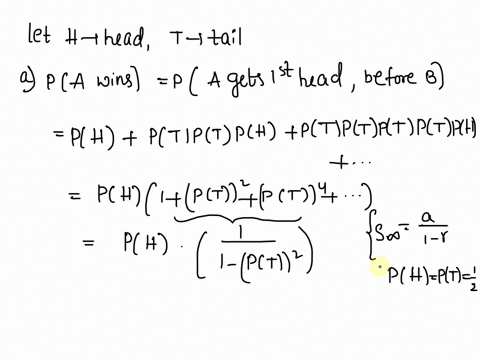 let H→head, T→tail
a) P(A wins) = P( A gets 1st head, before B)
= P(H) + P(T)P(T)P(H) + P(T)P(T)P(T)P(T)P(H)
+ ...
= P(H) (1+(P(T))²+(P(T))⁴+ ...)
= P(H) · ( 1 / 1-(P(T))² ) { S∞ = a / 1-r
P(H)=P(T)=1/2